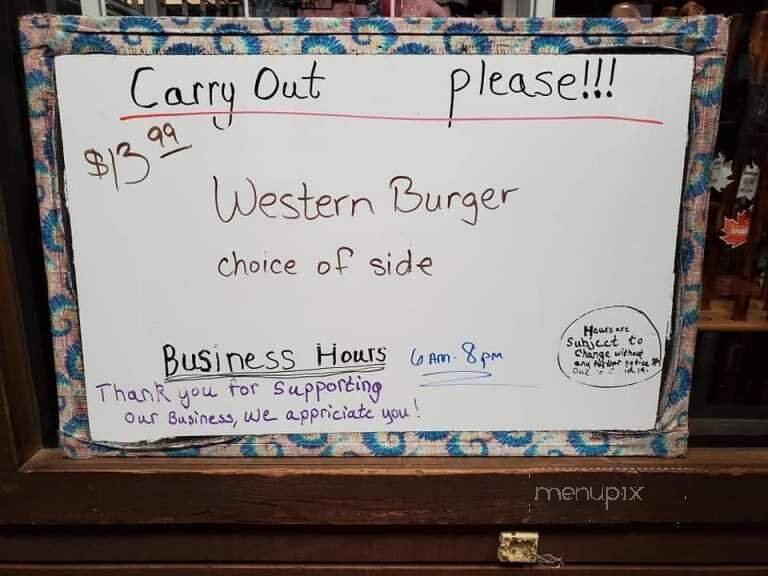 Carry Out please!!!
$13.99
Western Burger
choice of side
Business Hours 6 AM - 8 pm
Hours are
Subject to
Change without
any further notice
Thank you for supporting
our Business, we appriciate you!
menupix